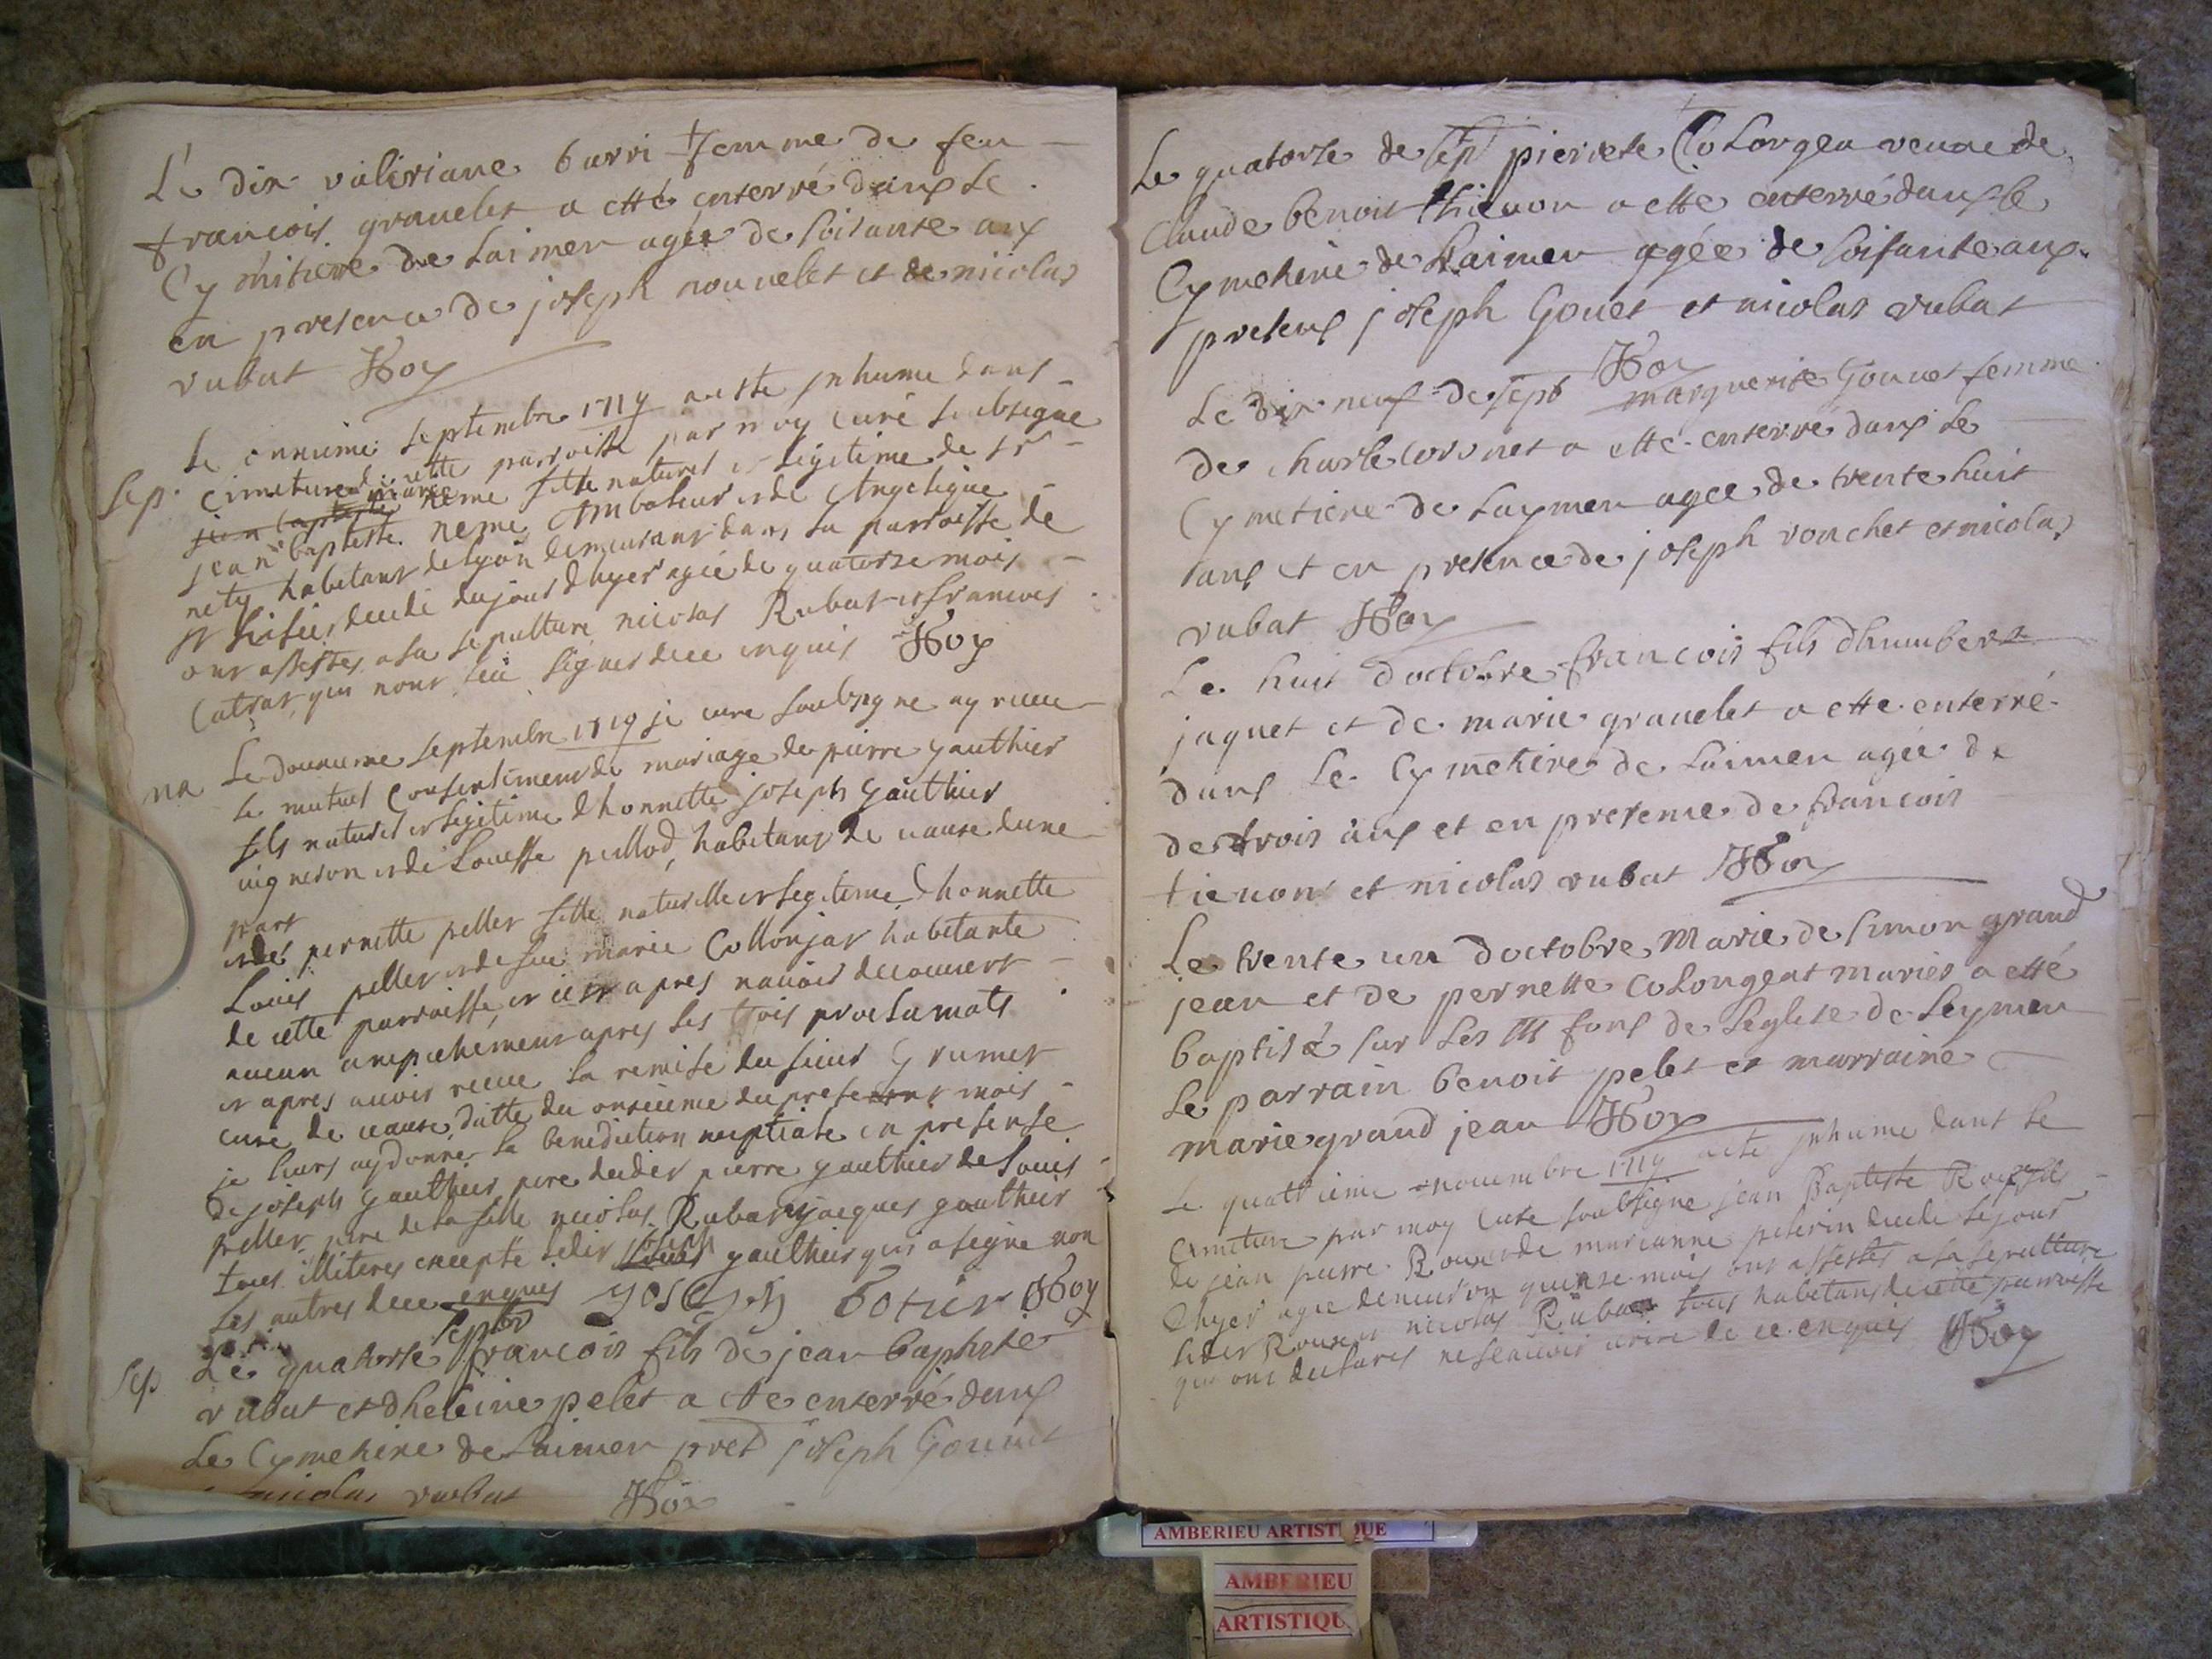 Le dix valiriane burri femme de feu
francois gravelet a etté enterré dans le
Cymitiere de Laimen agée de soisante ans
en presence de joseph nouvelet et de nicolas
rubat Roy
Sep.
Le onziême septembre 1719 a este inhume dans
cimeture de cette parroisse par moy curé soubsigne
jean baptiste marie neme fille naturel et legitime de sr
jean baptiste neme et de Angelique
habitant de lyon demeurant dans la parroisse de
st decedé du jour dhyer agée de quatorze mois
ont assistes a sa sepulture nicolas Rubat et francois
qui nont sceu signer de ce enquis Roy
ma
Le douzieme septembre 1719 je cure soubsigne ay receu
le mutuel consentiment de mariage de pierre gauthier
fils naturel et legitime dhonnette joseph gauthier
vigneron et de Louesse pullod, habitant de vause dune
part
et de pernette pellet fille naturelle et legitime dhonnette
Louis pellet et de feu marie Collonjat habitante
de cette parroisse, et ce apres navoir decouvert
aucun ampechement apres les trois proclamats
et apres avoir receu la remise du sieur grumet
cure de vause ditte du onzeieme du present mois
je leurs ay donné la benediction nuptiale en presense
de joseph gauthier pere dudit pierre gauthier de Louis
pellet pere de la fille nicolas Rubat jacques gauthier
tous illiteres excepté ledit Louis joseph gauthier qui a signé non
les autres de ce enquis yoseph Botier Roy
Sep
Le quatorse septbr francois fils de jean baptiste
rubat et dheleine pelet a ette enterré dans
Le Cymetiere de Laimen pret joseph Gouvet
nicolas rubat Roy
Le quatorse de sept pierrete Colongea veuve de
Claude benoit thievon a ette enterré dans le
Cymetiere de Laimen agée de soisante ans
presens joseph Govet et nicolas rubat
Roy
Le dix neuf de sept marguerite Gouvet femme
de charle coronet a etté enterré dans Le
Cymetiere de Laymen agee de trente huit
ans et en presence de joseph vouchet et nicolas
rubat Roy
Le huit doctobre francois fils dhumbert
jaquet et de marie gravelet a ette enterré
dans Le Cymetiere de Laimen agée de
de trois ans et en presence de francois
tievon et nicolas rubat Roy
Le trente un doctobre Marie de simon grand
jean et de pernette Colongeat mariés a etté
baptisé sur Les fons de Leglise de Leymen
Le parrain benoit pelet et marraine
marie grand jean Roy
Le quattrieme novembre 1719 a ete inhume dans le
cimeture par moy Cure soubsigne jean Baptiste Roux fils
de jean pierre Roux et de marianne pelerin decede le jour
dhyer age denviron quinze mois ont assistes a sa sepulture
ledit Roux et nicolas Rubat tous habitans de cette parroisse
qui ont declares ne scavoir de ce enquis Roy
AMBERIEU ARTISTIQUE
AMBERIEU
ARTISTIQU